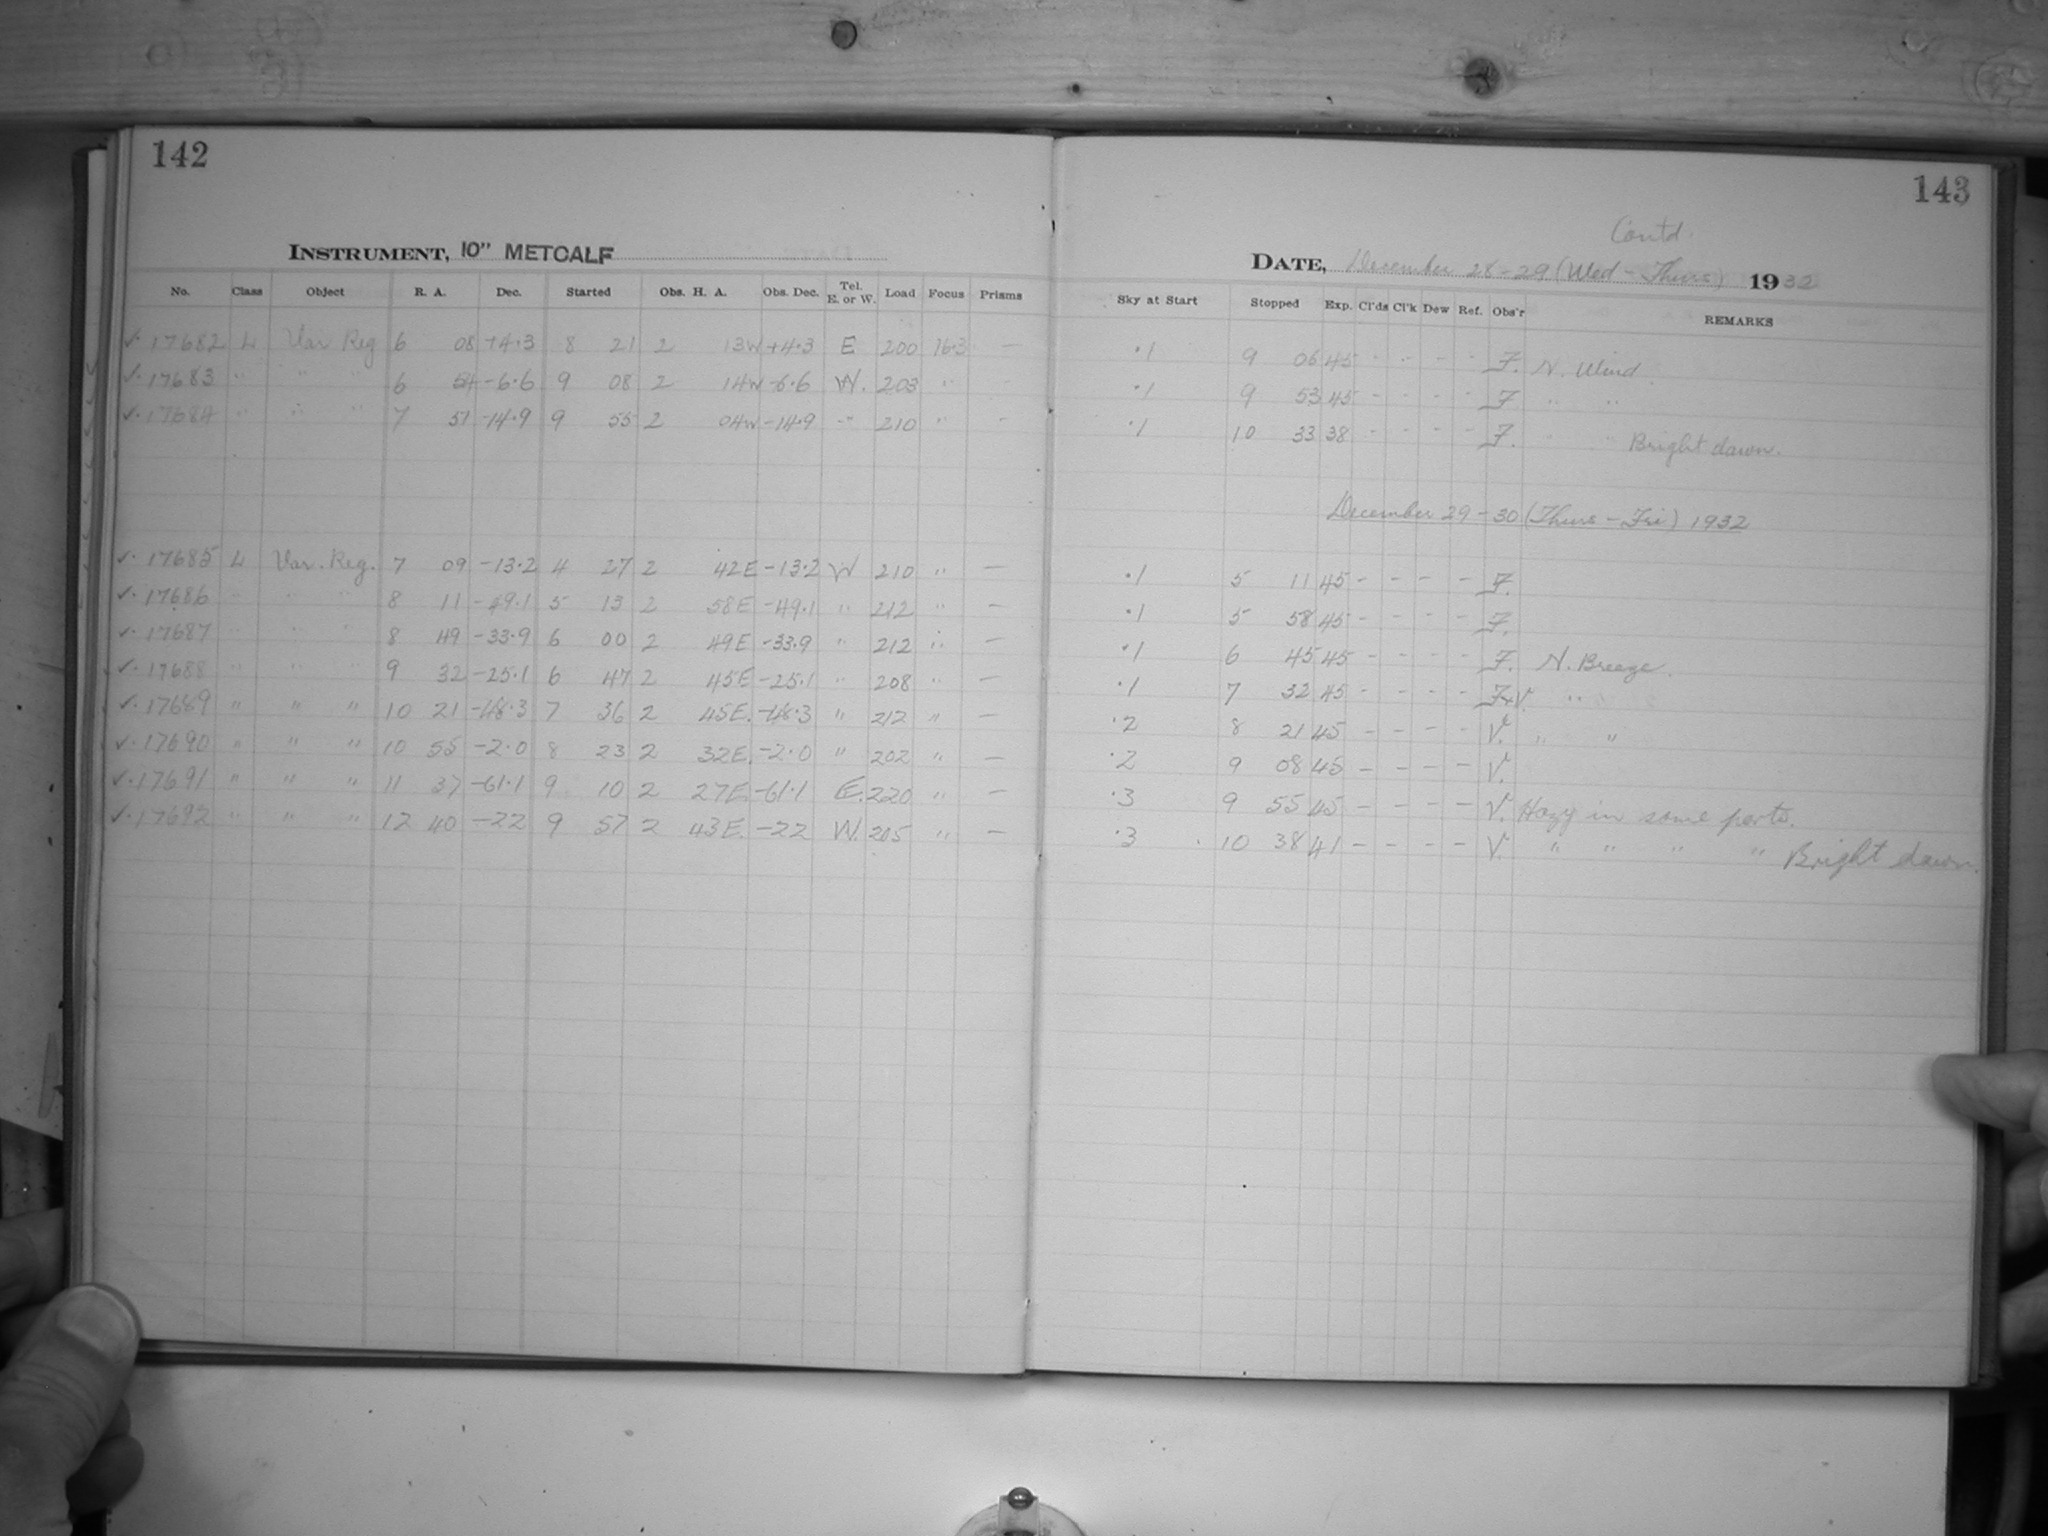 142
INSTRUMENT, 10" METCALF
No. Class Object R. A. Dec. Started Obs. H. A. Obs. Dec. Tel. E. or W. Load Focus Prisms
✓. 17682 L Var. Reg 6 08 +4.3 8 21 2 13W +4.3 E 200 16.3 —
✓. 17683 " " " 6 54 -6.6 9 08 2 14W -6.6 W. 203 " -
✓. 17684 " " " 7 51 -14.9 9 55 2 04W -14.9 " 210 " -
✓. 17685 L Var. Reg. 7 09 -13.2 4 27 2 42E -13.2 W 210 " —
✓. 17686 " " " 8 11 -49.1 5 13 2 58E -49.1 " 212 " —
✓. 17687 " " " 8 49 -33.9 6 00 2 49E -33.9 " 212 " —
✓. 17688 " " " 9 32 -25.1 6 47 2 45E -25.1 " 208 " —
✓. 17689 " " " 10 21 -48.3 7 36 2 45E. -48.3 " 212 " —
✓. 17690 " " " 10 55 -2.0 8 23 2 32E. -2.0 " 202 " —
✓. 17691 " " " 11 37 -61.1 9 10 2 27E. -61.1 E. 220 " —
✓. 17692 " " " 12 40 -22 9 57 2 43E. -22 W. 205 " —
143
Contd.
DATE, December 28-29 (Wed - Thurs) 1932
Sky at Start Stopped Exp. Cl'ds Cl'k Dew Ref. Obs'r REMARKS
.1 9 06 45 - - - - F. N. Wind.
.1 9 53 45 - - - - F " "
.1 10 33 38 - - - - F. " " Bright dawn.
December 29-30 (Thurs - Fri) 1932
.1 5 11 45 - - - - F.
.1 5 58 45 - - - - F.
.1 6 45 45 - - - - F. N. Breeze.
.1 7 32 45 - - - - F+V. " "
.2 8 21 45 - - - - V. " "
.2 9 08 45 - - - - V.
.3 9 55 45 - - - - V. Hazy in some parts.
.3 10 38 41 - - - - V. " " " " Bright dawn.